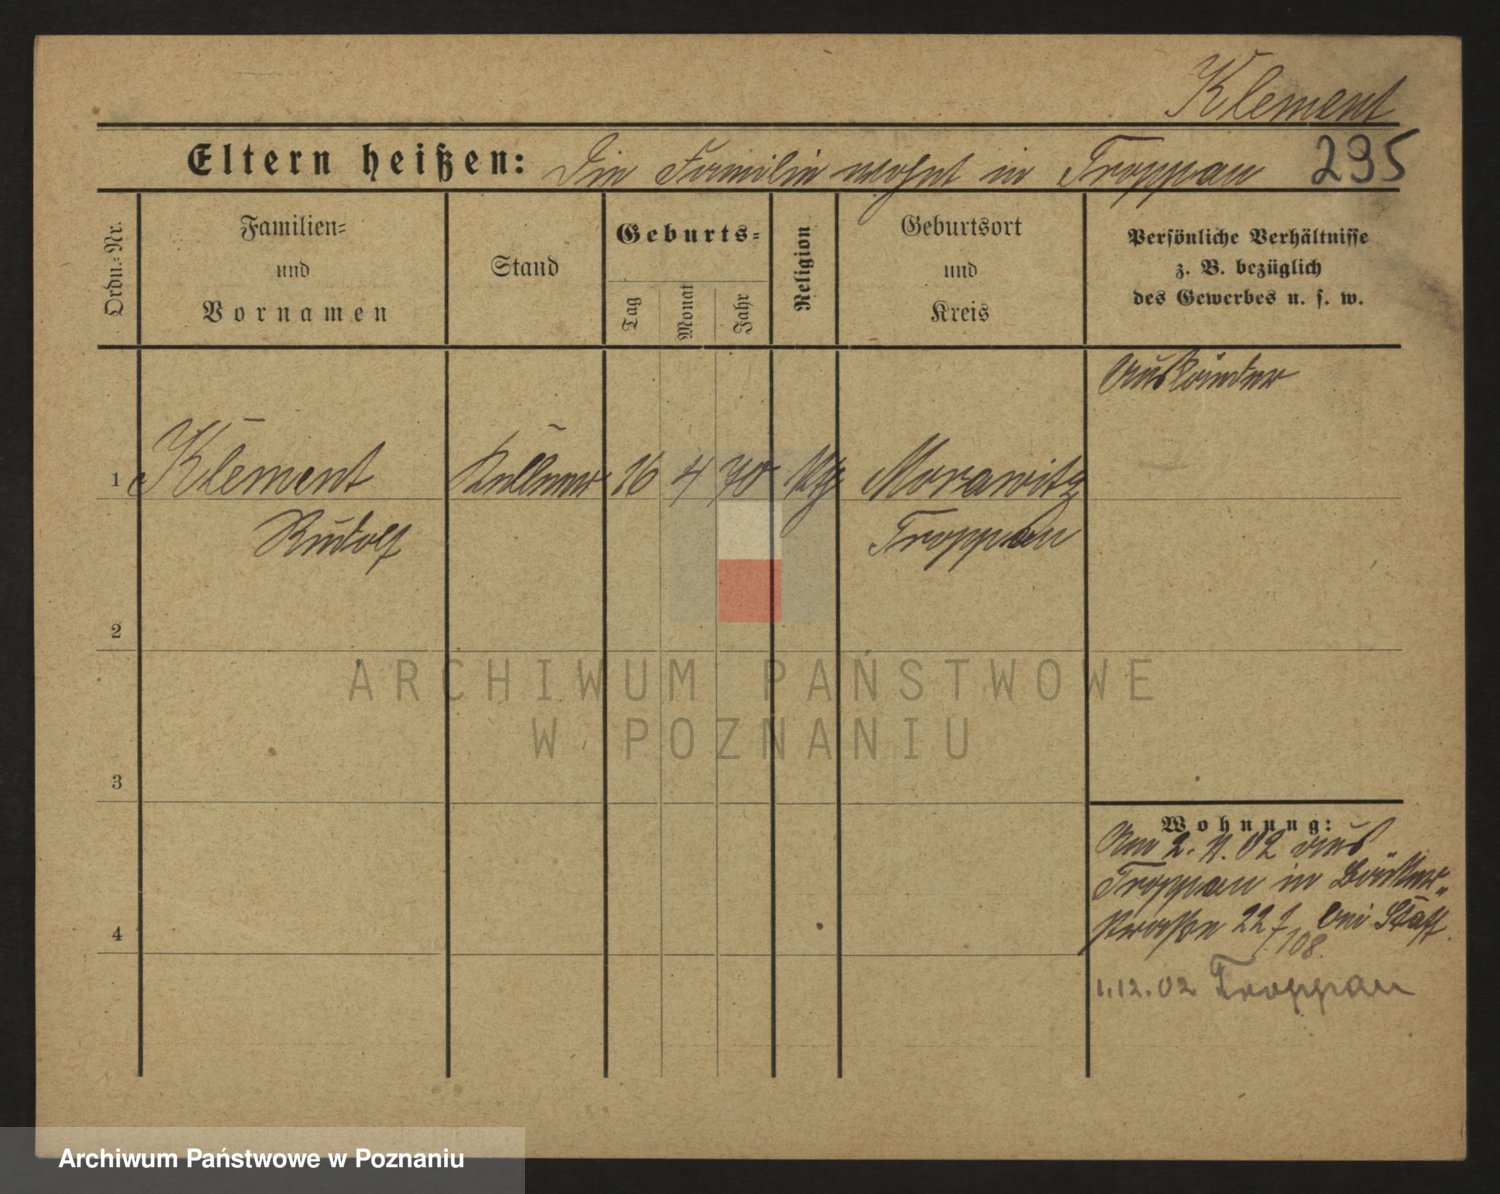 Klement
Eltern heißen: Die Familie wohnt in Troppau 295
Ordn.=Nr.
Familien=
und
Vornamen
Stand
Geburts=
Tag
Monat
Jahr
Religion
Geburtsort
und
Kreis
Persönliche Verhältnisse
z. B. bezüglich
des Gewerbes u. s. w.
Ausländer
1 Klement Kellner 16 4 70 Morawitz
Rudolf Troppau
2
3
4
Wohnung:
Am 2. 4. 02 aus
Troppau in Bäcker-
straße 22 bei
108.
1.12.02 Troppau
ARCHIWUM PAŃSTWOWE
W POZNANIU
Archiwum Państwowe w Poznaniu